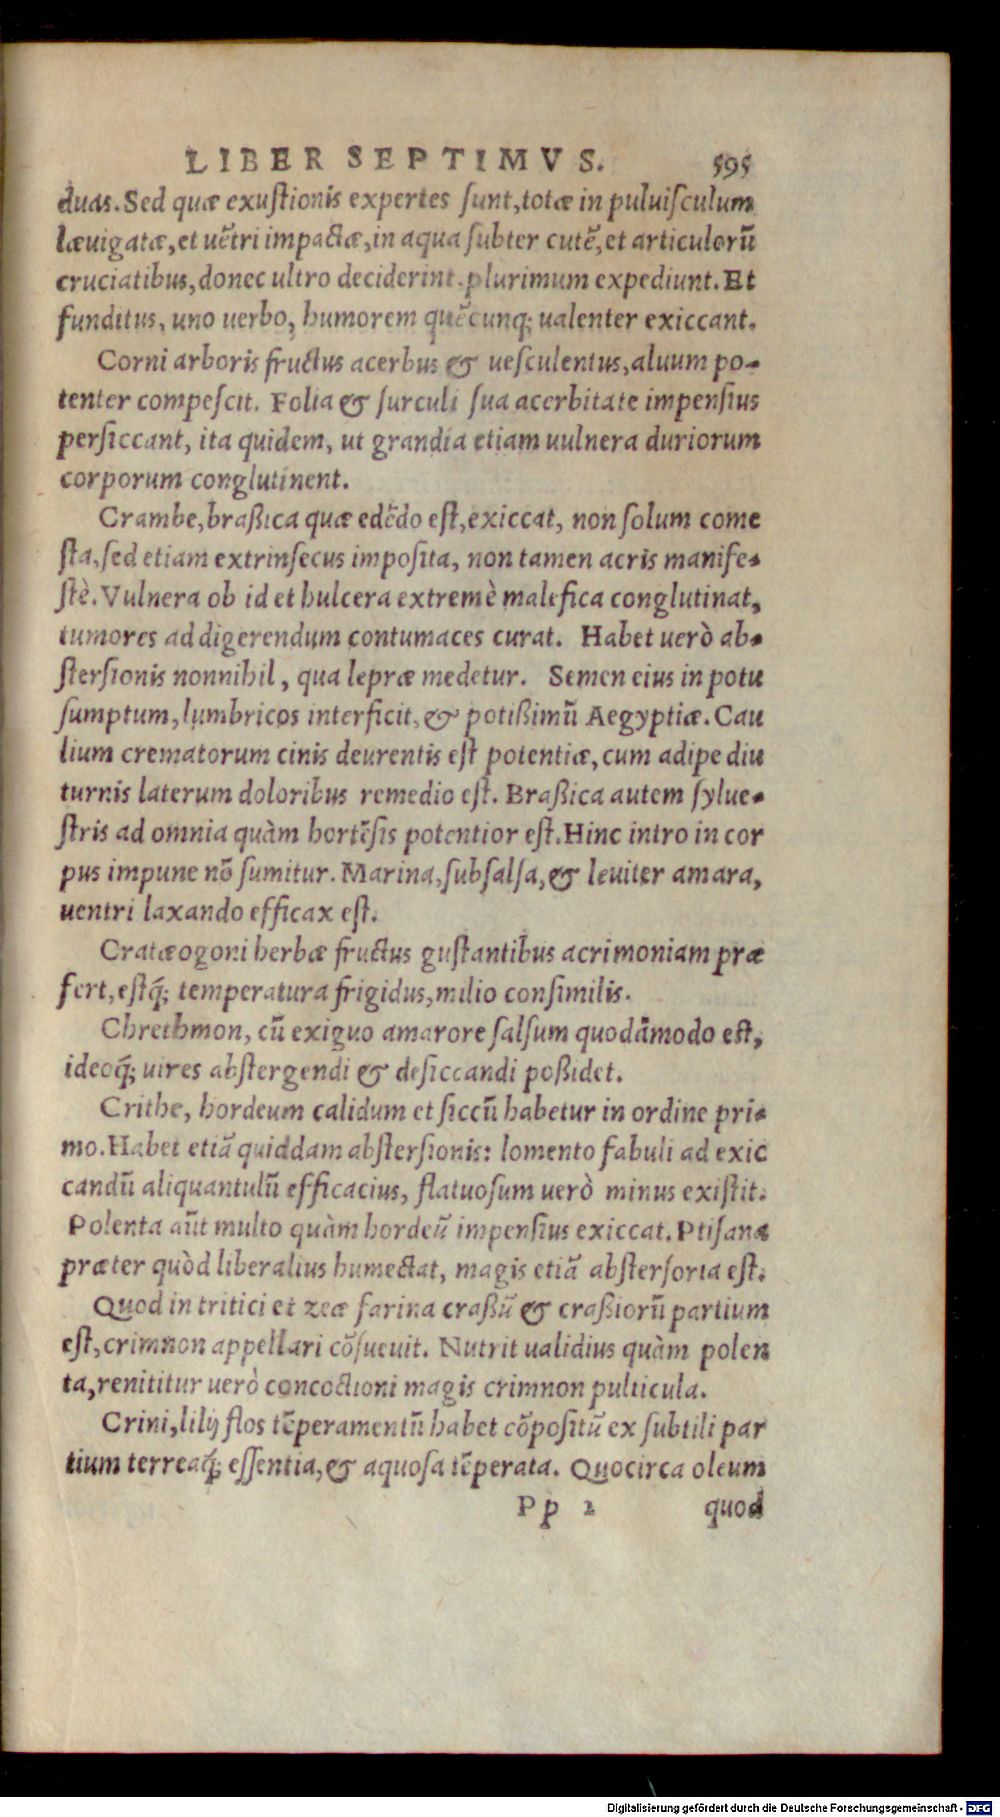 LIBER SEPTIMVS. 595
duas. Sed quæ exuſtionis expertes ſunt, totæ in puluiſculum
læuigatæ, et uētri impactæ, in aqua ſubter cutē, et articulorū
cruciatibus, donec ultro deciderint, plurimum expediunt. Et
funditus, uno uerbo, humorem quēcunq; ualenter exiccant.
Corni arboris fructus acerbus & ueſculentus, aluum po-
tenter compeſcit. Folia & ſurculi ſua acerbitate impenſius
perſiccant, ita quidem, ut grandia etiam uulnera duriorum
corporum conglutinent.
Crambe, braßica quæ edēdo eſt, exiccat, non ſolum come
ſta, ſed etiam extrinſecus impoſita, non tamen acris manife-
ſtè. Vulnera ob id et hulcera extremè malefica conglutinat,
tumores ad digerendum contumaces curat. Habet uerò ab-
ſterſionis nonnihil, qua lepræ medetur. Semen eius in potu
ſumptum, lumbricos interficit, & potißimū Aegyptiæ. Cau
lium crematorum cinis deurentis eſt potentiæ, cum adipe diu
turnis laterum doloribus remedio eſt. Braßica autem ſylue-
ſtris ad omnia quàm hortēſis potentior eſt. Hinc intro in cor
pus impune nō ſumitur. Marina, ſubſalſa, & leuiter amara,
uentri laxando efficax eſt.
Cratæogoni herbæ fructus guſtantibus acrimoniam præ
fert, eſtq́; temperatura frigidus, milio conſimilis.
Chrethmon, cū exiguo amarore ſalſum quodāmodo eſt,
ideoq́; uires abſtergendi & deſiccandi poßidet.
Crithe, hordeum calidum et ſiccū habetur in ordine pri-
mo. Habet etiā quiddam abſterſionis: lomento fabuli ad exic
candū aliquantulū efficacius, flatuoſum uerò minus exiſtit.
Polenta aūt multo quàm hordeū impenſius exiccat. Ptiſana
præter quòd liberalius humectat, magis etiā abſterſoria eſt.
Quod in tritici et zeæ farina craßū & craßiorū partium
eſt, crimnon appellari cōſueuit. Nutrit ualidius quàm polen
ta, renititur uerò concoctioni magis crimnon pulticula.
Crini, lilij flos tēperamentū habet cōpoſitū ex ſubtili par
tium terreaq́; eſſentia, & aquoſa tēperata. Quocirca oleum
Pp 2 quod
Digitalisierung gefördert durch die Deutsche Forschungsgemeinschaft - DFG